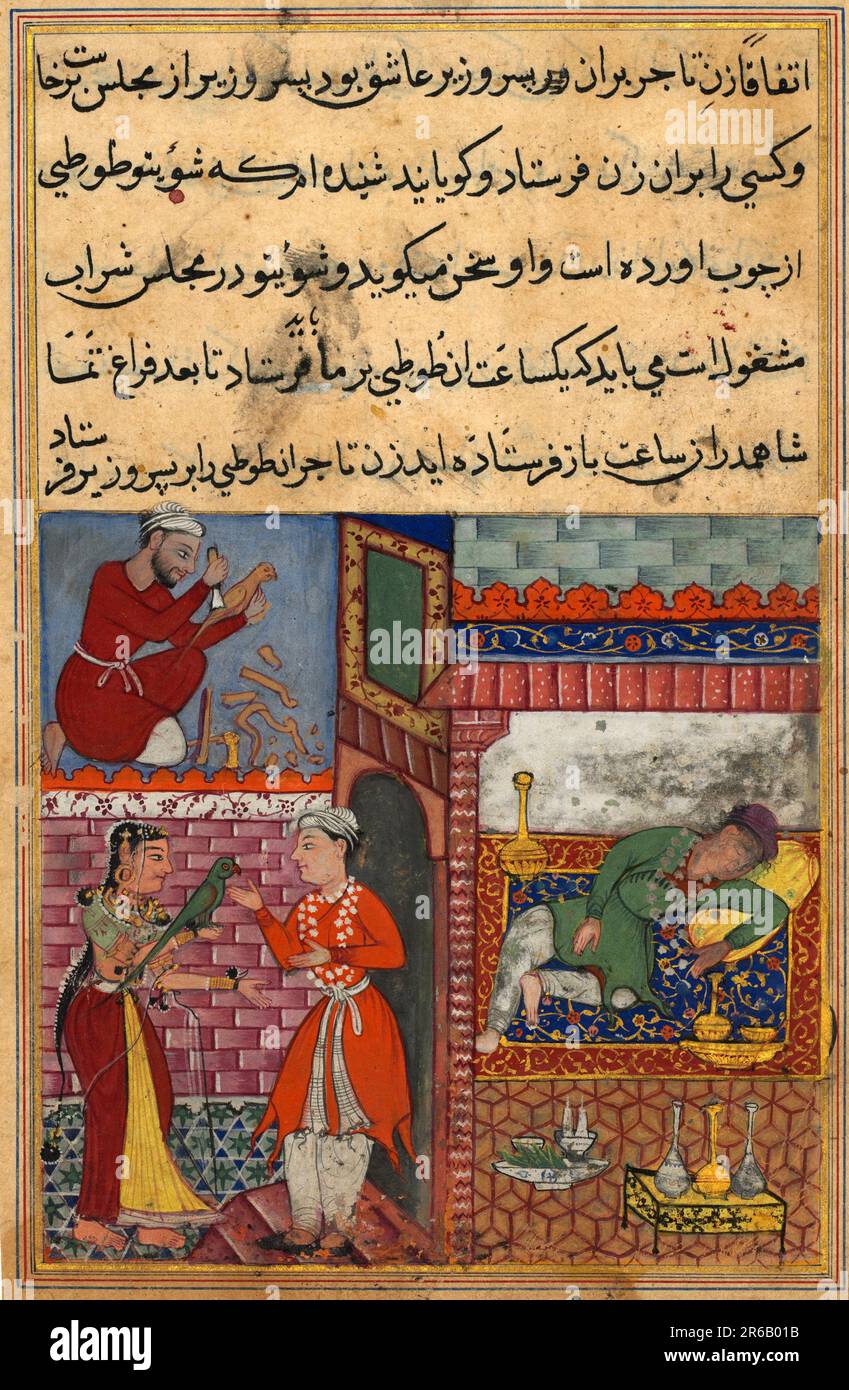 اتفاقًا زنِ تاجر بران پسر وزیر عاشق بود پسر وزیر از مجلس برخاست
و کسی را بران زن فرستاد و کویانید شنیده ام که شوئیتو طوطیی
از چوب اورده است و او سخن میکوید و شوئیتو در مجلس شراب
مشغولست می باید که یکساعت ان طوطیی بر ما باید فرستاد تا بعد فراغ تمَا
شا همدران ساعت باز فرستادَه اید زن تاجر انطوطیی را بر پسر وزیر فرستاد
alamy
Image ID: 2R6B01B
www.alamy.com